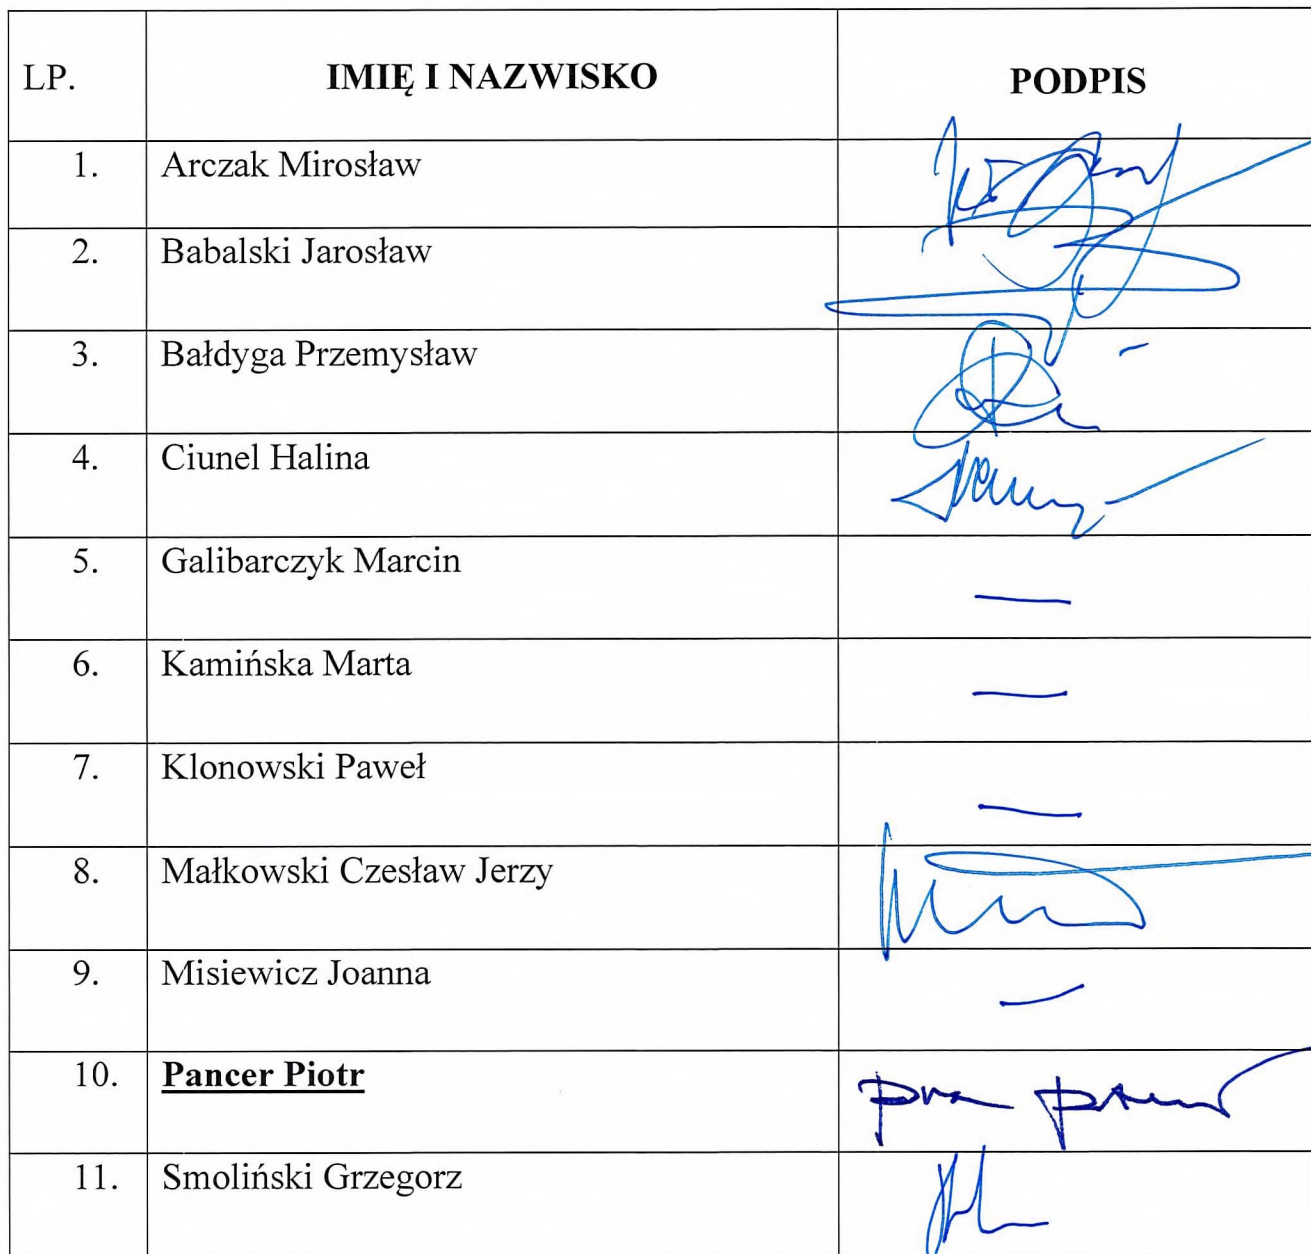 LP. IMIĘ I NAZWISKO PODPIS
1. Arczak Mirosław
2. Babalski Jarosław
3. Bałdyga Przemysław
4. Ciunel Halina
5. Galibarczyk Marcin —
6. Kamińska Marta —
7. Klonowski Paweł —
8. Małkowski Czesław Jerzy
9. Misiewicz Joanna —
10. Pancer Piotr
11. Smoliński Grzegorz